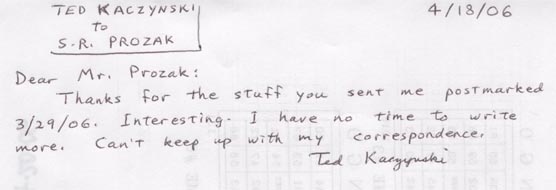 TED KACZYNSKI
to
S.R. PROZAK
4/18/06
Dear Mr. Prozak:
Thanks for the stuff you sent me postmarked
3/29/06. Interesting. I have no time to write
more. Can't keep up with my correspondence.
Ted Kaczynski